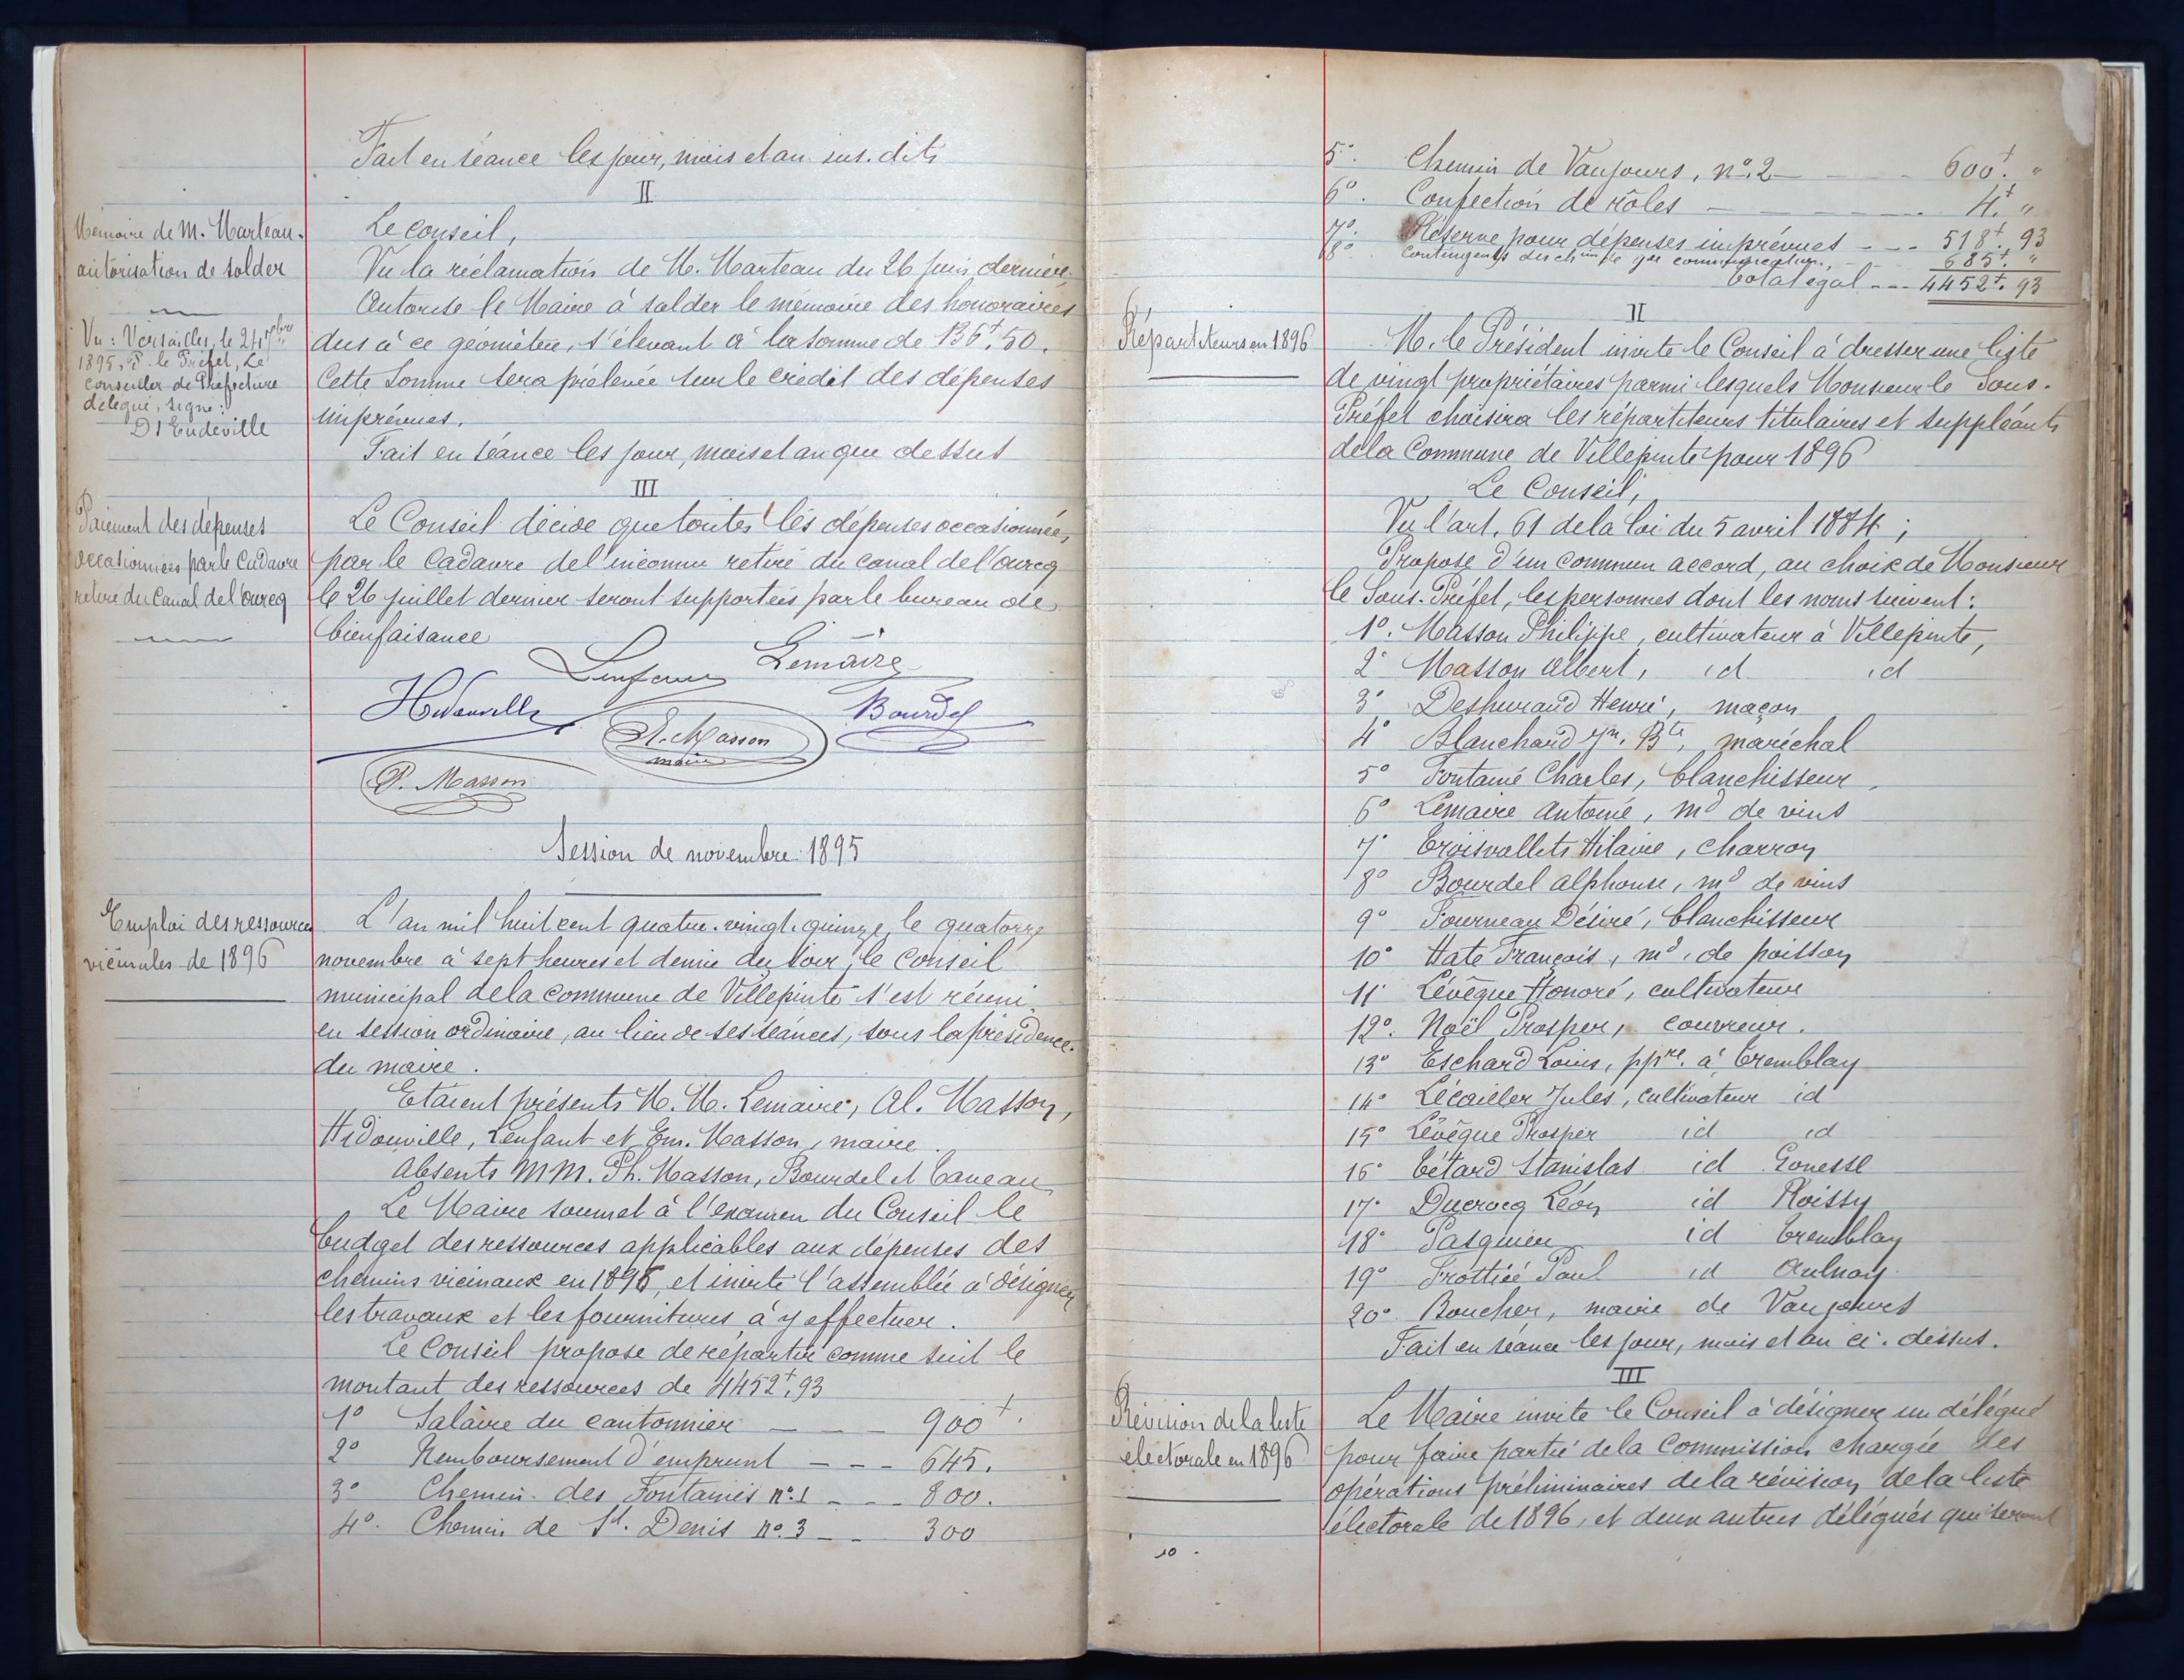 Fait en séance les jour, mois et an sus-dits
II
Mémoire de M. Marteau.
autorisation de solder
Le Conseil,
Vu la réclamation de M. Marteau du 26 juin dernier,
Autorise le Maire à solder le mémoire des honoraires
Vu : Versailles, le 24 7bre
1895, P. le Préfet, Le
conseiller de Préfecture
délégué, signé :
D'Eudeville
dus à ce géomètre, s'élevant à la somme de 136f.50.
Cette somme sera prélevée sur le crédit des dépenses
imprévues.
Fait en séance les jour, mois et an que dessus
III
Paiement des dépenses
occasionnées par le cadavre
retiré du Canal de l'ourcq
Le Conseil décide que toutes les dépenses occasionnées
par le Cadavre de l'inconnu retiré du canal de l'ourcq
le 26 juillet dernier seront supportées par le bureau de
bienfaisance
Lenfant Lemaire
Hidouville E. Masson maire Bourdel
P. Masson
Session de novembre 1895
Emploi des ressources
vicinales de 1896
L'an mil huit cent quatre-vingt-quinze, le quatorze
novembre à sept heures et demie du soir, le Conseil
municipal de la commune de Villepinte s'est réuni
en session ordinaire, au lieu de ses séances, sous la présidence
du maire.
Etaient présents M. M. Lemaire, Al. Masson,
Hidouville, Lenfant et Em. Masson, maire.
Absents MM. Ph. Masson, Bourdel et Caneau
Le Maire soumet à l'examen du Conseil le
budget des ressources applicables aux dépenses des
chemins vicinaux en 1896, et invite l'assemblée à désigner
les travaux et les fournitures à y effectuer.
Le Conseil propose de répartir comme suit le
montant des ressources de 4452f.93
1° Salaire du cantonnier - - - 900f.
2° Remboursement d'emprunt - - - 645.
3° Chemin des Fontaines n°.1 - - - 800.
4°. Chemin de St. Denis n°.3 - - 300
5°. Chemin de Vaujours, n°.2 - - - 600f. "
6°. Confection de rôles - - - - 4f. "
7°. Réserve pour dépenses imprévues - - - 518f.,93
8° Contingents des chins de gde communication, - - 685f. "
Total égal - - - 4452f.93
II
Répartiteurs en 1896
M. le Président invite le Conseil à dresser une liste
de vingt propriétaires parmi lesquels Monsieur le Sous-
Préfet choisira les répartiteurs titulaires et suppléants
de la Commune de Villepinte pour 1896
Le Conseil,
Vu l'art. 61 de la loi du 5 avril 1884 ;
Propose d'un commun accord, au choix de Monsieur
le Sous-Préfet, les personnes dont les noms suivent :
1°. Masson Philippe, cultivateur à Villepinte,
2° Masson Albert, id id
3° Deshuraud Henri, maçon
4° Blanchard Jn. Bte, maréchal
5° Fontaine Charles, blanchisseur,
6° Lemaire Antoine, md de vins
7° Troisvallets Hilaire, charron
8° Bourdel Alphonse, md de vins
9° Fourneau Désiré, blanchisseur
10° Hate François, md. de poisson
11° Lévêque Honoré, cultivateur
12°. Noël Prosper, couvreur.
13° Eschard Louis, ppre. à Tremblay
14° Lécailler Jules, cultivateur id
15° Lévêque Prosper id id
16° Tétard Stanislas id Gonesse
17° Ducrocq Léon id Roissy
18° Pasquier id Tremblay
19° Frottié Paul id Aulnay
20° Boucher, maire de Vaujours
Fait en séance les jour, mois et an ci-dessus.
III
Révision de la liste
électorale en 1896
Le Maire invite le Conseil à désigner un délégué
pour faire partie de la Commission chargée des
opérations préliminaires de la révision de la liste
électorale de 1896, et deux autres délégués qui seront
10.